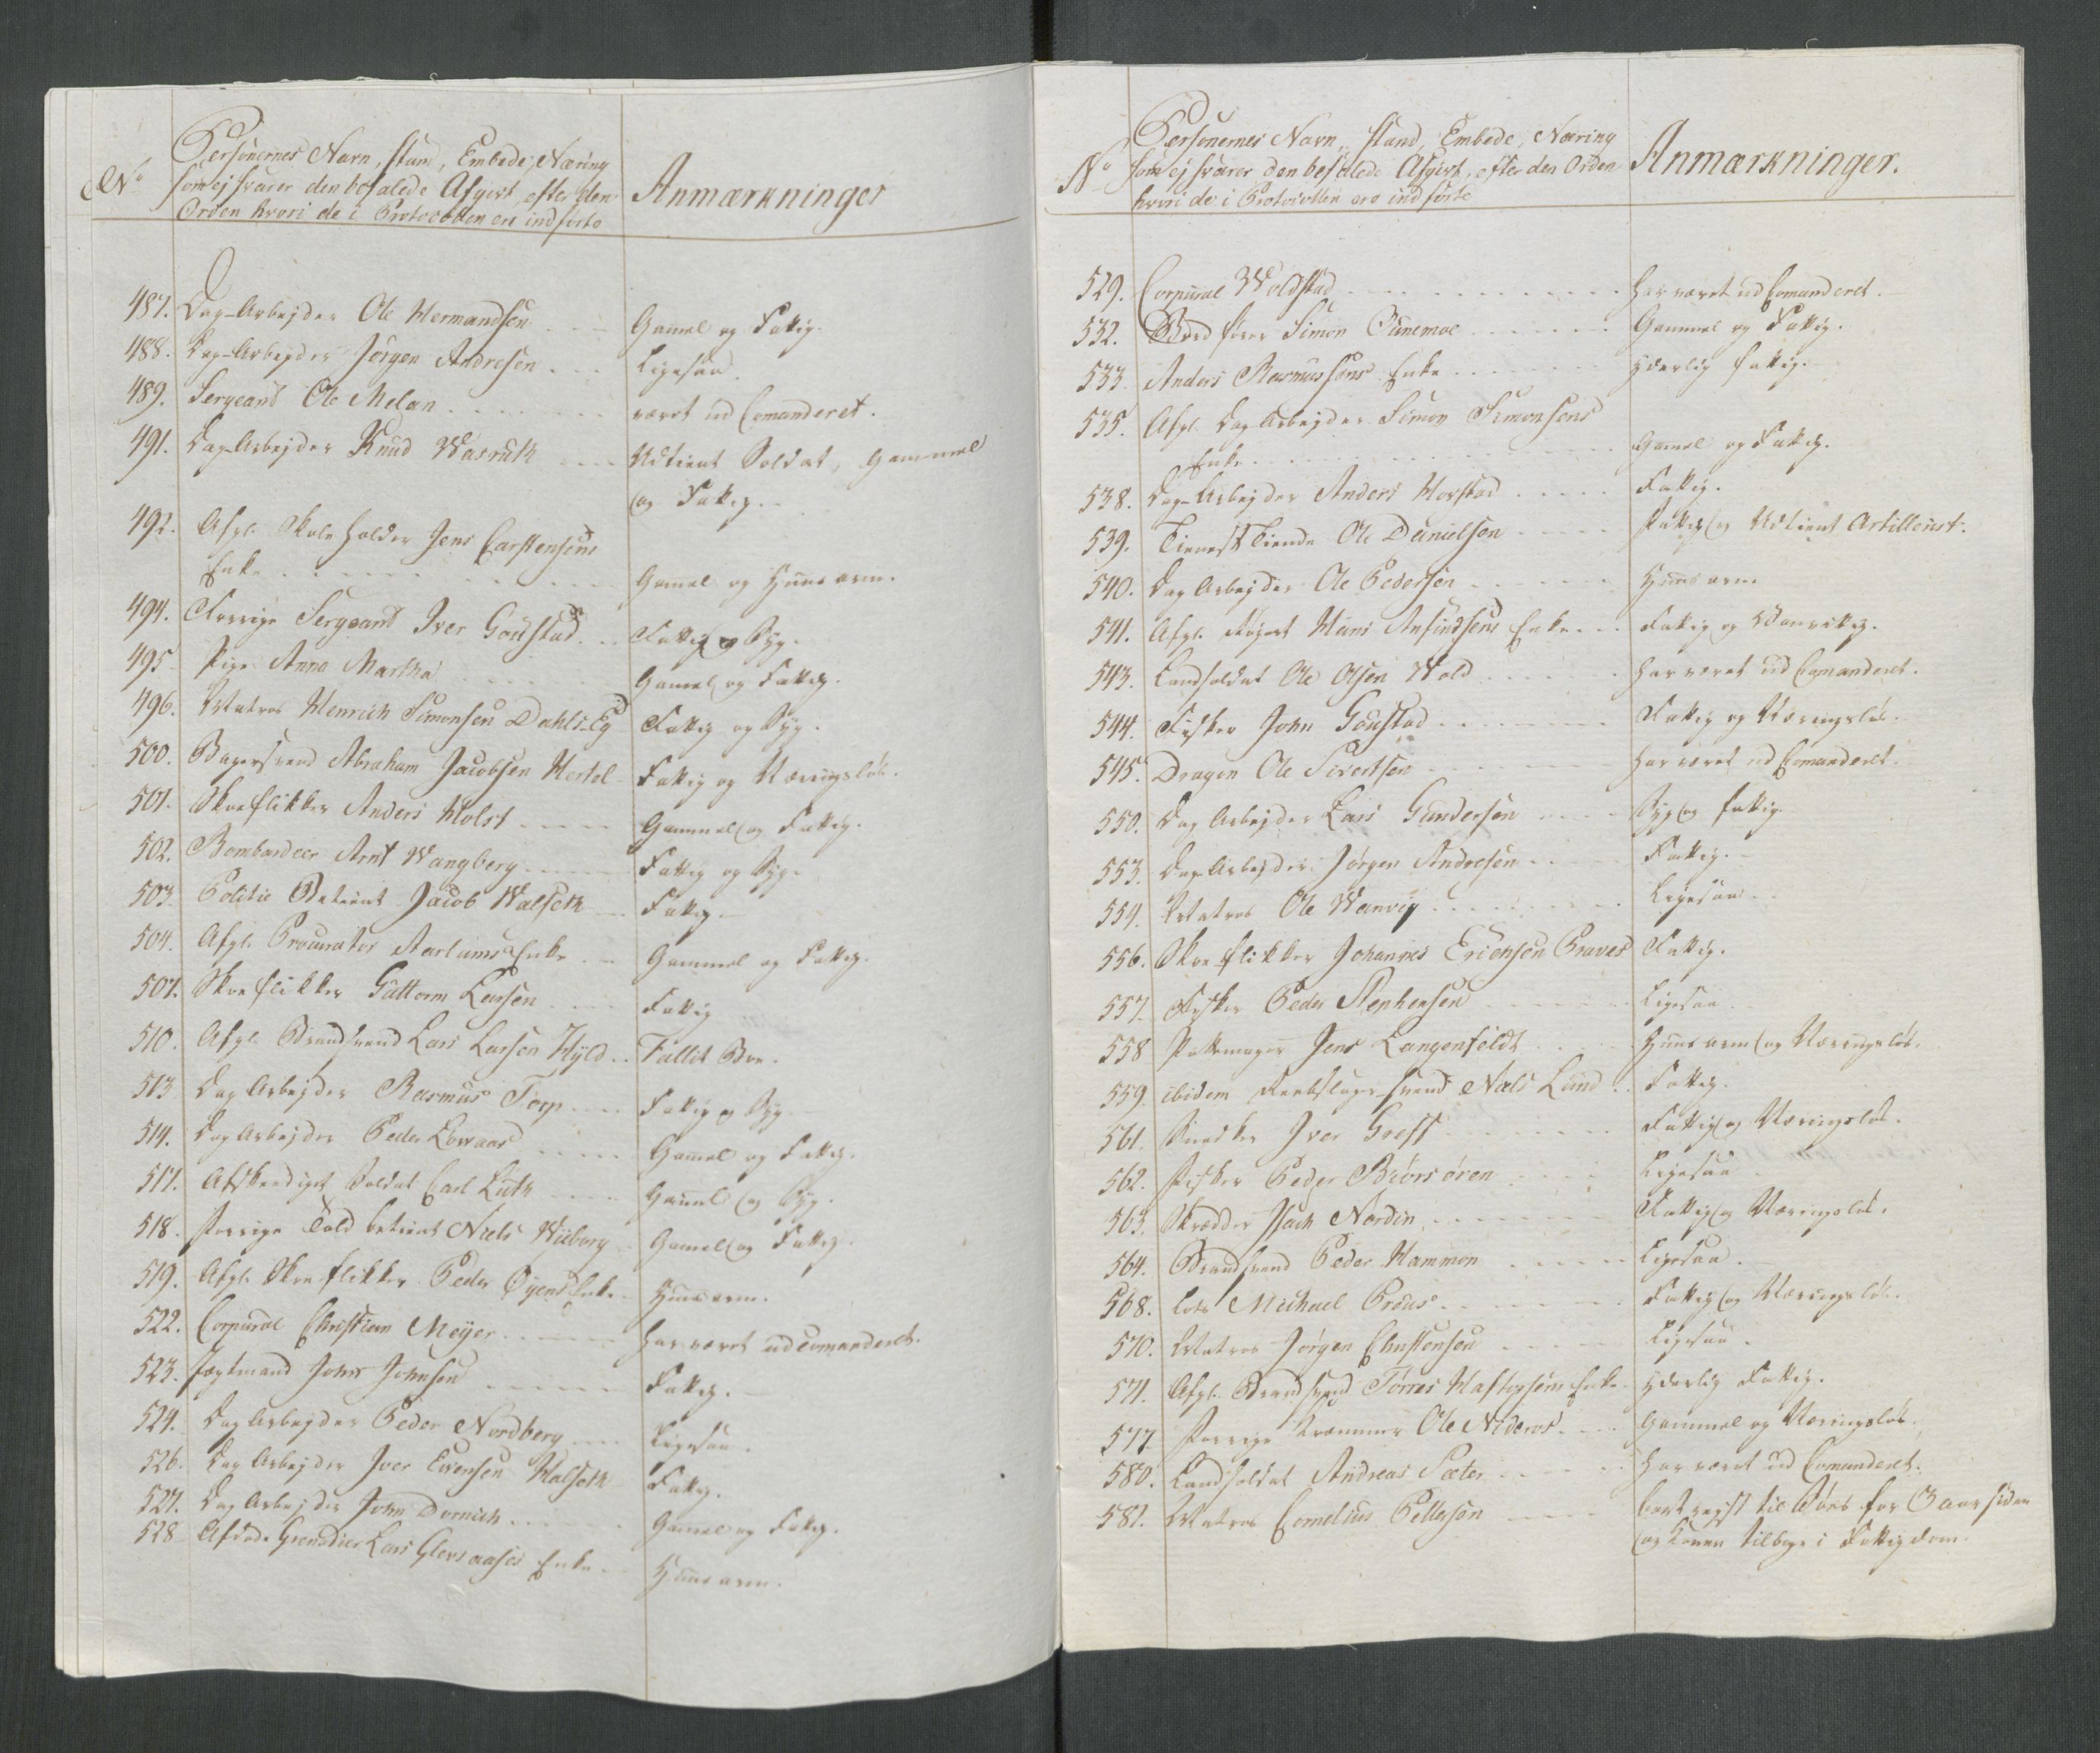 No
Personernes Navn, stand, Embede, Næring
som ej svarer den befalede Afgivt, efter den
Orden hvori de i Protocollen ere indførte
Anmærkninger
487. Dag-Arbejder Ole Hermandsen Gamel og Fattig.
488. Dag-Arbejder Jørgen Andresen Ligesaa.
489. Sergeant Ole Melan været ud Comanderet.
491. Dag-Arbejder Knud Wasruth Udtient Soldat, Gammel
og Fattig.
492. Afgl. Skoleholder Jens Carstensens
Enke Gamel og Huusarm.
494. Forrige Sergeant Iver Goustad Fattig og Syg.
495 Pige Anna Martha Gamel og Fattig.
496. Matros Henrich Simonsen Dahls-Eg Fattig og Syg.
500. Bagersvend Abraham Jacobsen Hertel Fattig og Næringsløs.
501. Skoeflikker Anders Holst Gammel og Fattig.
502. Bombardeer Arnt Wangberg Fattig og Syg.
503. Politie Betient Jacob Walseth Fattig.
504. Afgl. Procurator Enke Gammel og Fattig.
507. Skoeflikker Guttorm Larsen Fattig
510. Afgl. Brandsvend Lars Larsen Hyld Fallit Boe.
513 Dag Arbejder Rasmus Torp Fattig og Syg
514. Dag Arbejder Peder Lovaas Gamel og Fattig.
517. Afskediget Soldat Carl Luth Gamel og Syg.
518. Forrige Told betient Niels Wiborg Gamel og Fattig.
519. Afgl. Skoeflikker Peder Øyens Enke Huusarm.
522. Corporal Christian Meyer har været udcomanderet.
523. Jægtmand John Johnsen Fattig.
524. Dag Arbejder Peder Nordberg Ligesaa.
526. Dag Arbejder Iver Evensen Halseth Fattig.
527. Dag Arbejder John Gamel og Fattig.
528 Afdøde Grenadier Lars Enke Huusarm.
No
Personernes Navn, stand, Embede, Næring
som ej svarer den befalede Afgivt, efter den Orden
hvori de i Protocollen ere indførte
Anmærkninger.
529. Corporal Woldstad har været ud Comanderet.
532. Simon Gammel og Fattig.
533. Anders Rasmussens Enke yderlig fattig.
535. Afgl. Dag Arbejder Simon Simonsens
Enke Gamel og Fattig.
538. Dag-Arbejder Anders Horstad Fattig.
539. Tienest Tiende Ole Danielsen Fattig og Udtient Artillerist.
540. Dag Arbejder Ole Pedersen Huusarm
541. Afgl. Hans Anfindsens Enke Fattig og Vanvittig.
543. Landsoldat Ole Olsen Wold har været ud Comanderet.
544. Fisker John Goustad Fattig og Næringsløs.
545. Dragon Ole Sivertsen har været ud Comanderet.
550. Dag Arbejder Lars Gundersen Syg og fattig.
553. Dag Arbejder Jørgen Andresen Fattig.
559. Matros Ole Wanvig Ligesaa
556. Skoeflikker Johannes Erichsen Graver Fattig.
557. Fisker Peder Stephensen Ligesaa
558 Jens Langenfeldt Huusarm og Næringsløs.
559. ibidem Reebslagersvend Niels Lund Fattig.
561. Snedker Iver Greft Fattig og Næringsløs.
562. Fisker Peder Biørsøren Ligesaa
563. Skrædder Isach Nordin Fattig og Næringsløs.
564. Brandsvend Peder Hammon Ligesaa.
568. Lots Michael Fattig og Næringsløs.
570. Matros Jørgen Christensen Ligesaa.
571. Afgl. Brandsvend Tørres Enke yderlig Fattig.
577 Forrige Kræmmer Ole Nideros Gammel og Næringsløs.
580. Landsoldat Andreas Sæter har været ud Comanderet.
581. Matros Cornelius Pettersen bortrejst til Søes for 3 aar siden
og Konen tilbage i Fattigdom.